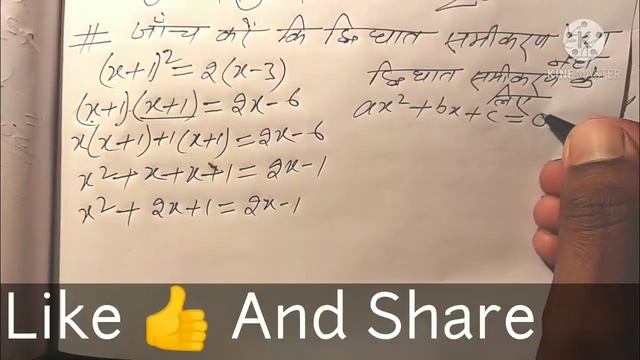 # जाँच करें कि द्विघात समीकरण
(x+1)² = 2(x-3)
(x+1)(x+1) = 2x-6
x(x+1)+1(x+1) = 2x-6
x²+x+x+1 = 2x-1
x²+2x+1 = 2x-1
द्विघात समीकरण के
लिए
ax²+bx+c=0
KINEMASTER
Like 👍 And Share